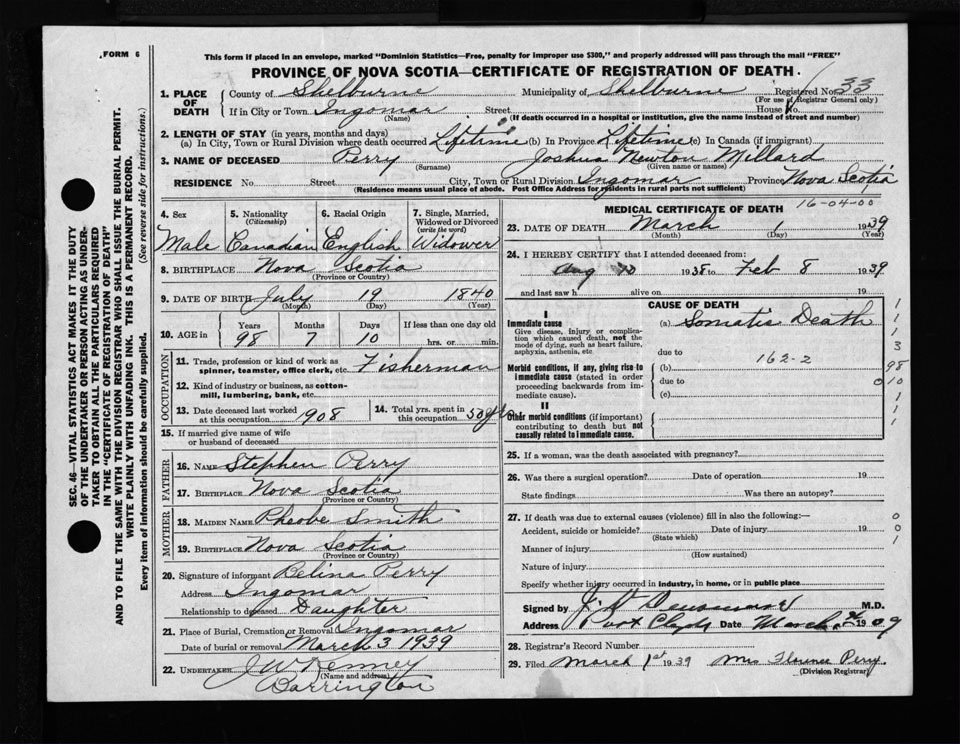 FORM 6
This form if placed in an envelope, marked "Dominion Statistics—Free, penalty for improper use $300," and properly addressed will pass through the mail "FREE"
PROVINCE OF NOVA SCOTIA—CERTIFICATE OF REGISTRATION OF DEATH.
1. PLACE OF DEATH
County of Shelburne Municipality of Shelburne Registered No. 33
(For use of Registrar General only)
If in City or Town Ingomar Street House No.
(Name) (If death occurred in a hospital or institution, give the name instead of street and number)
2. LENGTH OF STAY (in years, months and days)
(a) In City, Town or Rural Division where death occurred Lifetime (b) In Province Lifetime (c) In Canada (if immigrant)
3. NAME OF DECEASED Perry Joshua Newton Millard
(Surname) (Given name or names)
RESIDENCE No. Street City, Town or Rural Division Ingomar Province Nova Scotia
(Residence means usual place of abode. Post Office Address for residents in rural parts not sufficient)
SEC. 46—VITAL STATISTICS ACT MAKES IT THE DUTY
OF THE UNDERTAKER OR PERSON ACTING AS UNDER-
TAKER TO OBTAIN ALL THE PARTICULARS REQUIRED
IN THE "CERTIFICATE OF REGISTRATION OF DEATH"
AND TO FILE THE SAME WITH THE DIVISION REGISTRAR WHO SHALL ISSUE THE BURIAL PERMIT.
WRITE PLAINLY WITH UNFADING INK. THIS IS A PERMANENT RECORD.
Every item of information should be carefully supplied. (See reverse side for instructions.)
4. Sex
Male
5. Nationality
(Citizenship)
Canadian
6. Racial Origin
English
7. Single, Married,
Widowed or Divorced
(write the word)
Widower
8. BIRTHPLACE Nova Scotia
(Province or Country)
9. DATE OF BIRTH July 19 1840
(Month) (Day) (Year)
10. AGE in
Years Months Days If less than one day old
98 7 10 hrs. or min.
OCCUPATION
11. Trade, profession or kind of work as
spinner, teamster, office clerk, etc. Fisherman
12. Kind of industry or business, as cotton-
mill, lumbering, bank, etc.
13. Date deceased last worked
at this occupation 1908
14. Total yrs. spent in
this occupation 50 yrs
15. If married give name of wife
or husband of deceased
FATHER
16. NAME Stephen Perry
17. BIRTHPLACE Nova Scotia
(Province or Country)
MOTHER
18. MAIDEN NAME Pheobe Smith
19. BIRTHPLACE Nova Scotia
(Province or Country)
20. Signature of informant Belina Perry
Address Ingomar
Relationship to deceased Daughter
21. Place of Burial, Cremation or Removal Ingomar
Date of burial or removal March 3 1939
22. UNDERTAKER J W Kenney
(Name and address)
Barrington
MEDICAL CERTIFICATE OF DEATH 16-04-00
23. DATE OF DEATH March 1 1939
(Month) (Day) (Year)
24. I HEREBY CERTIFY that I attended deceased from:
Aug 1938 to Feb 8 1939
and last saw h alive on 19
CAUSE OF DEATH
I
Immediate cause
Give disease, injury or complica-
tion which caused death, not the
mode of dying, such as heart failure,
asphyxia, asthenia, etc
(a) Somatic Death
due to
162-2
Morbid conditions, if any, giving rise to
immediate cause (stated in order
proceeding backwards from im-
mediate cause).
(b)
due to
(c)
II
Other morbid conditions (if important)
contributing to death but not
causally related to immediate cause.
1
1
3
98
0 10
1
1
25. If a woman, was the death associated with pregnancy?
26. Was there a surgical operation? Date of operation 19
State findings Was there an autopsy?
27. If death was due to external causes (violence) fill in also the following:—
Accident, suicide or homicide? Date of injury 19
(State which)
Manner of injury
(How sustained)
Nature of injury
Specify whether injury occurred in industry, in home, or in public place
0
0
1
Signed by M.D.
Address Port Clyde Date March 19
28. Registrar's Record Number
29. Filed March 1st 1939 Mrs Florence Perry
(Division Registrar)